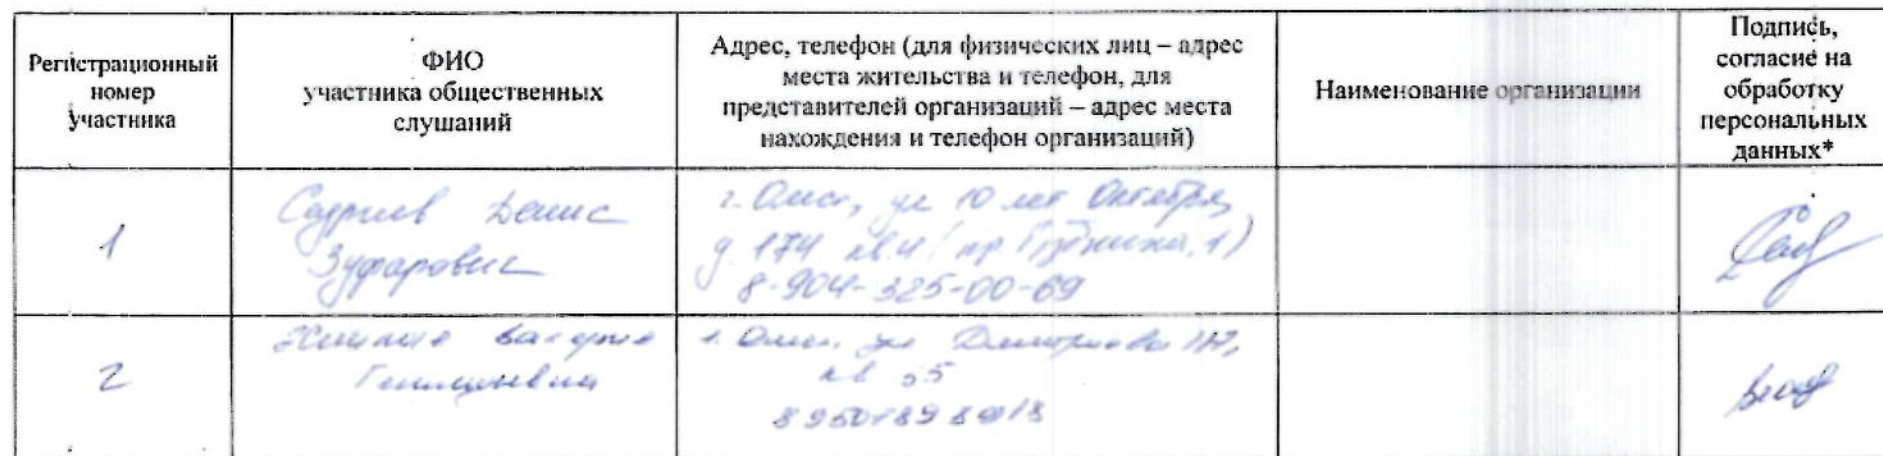 Регистрационный
номер
участника
ФИО
участника общественных
слушаний
Адрес, телефон (для физических лиц – адрес
места жительства и телефон, для
представителей организаций – адрес места
нахождения и телефон организаций)
Наименование организации
Подпись,
согласие на
обработку
персональных
данных*
1
Садриев Денис
Зуфарович
г. Омск, ул 10 лет Октября,
д. 174 кв. 4 1)
8-904-325-00-69
2
г. Омск, ул
кв 55